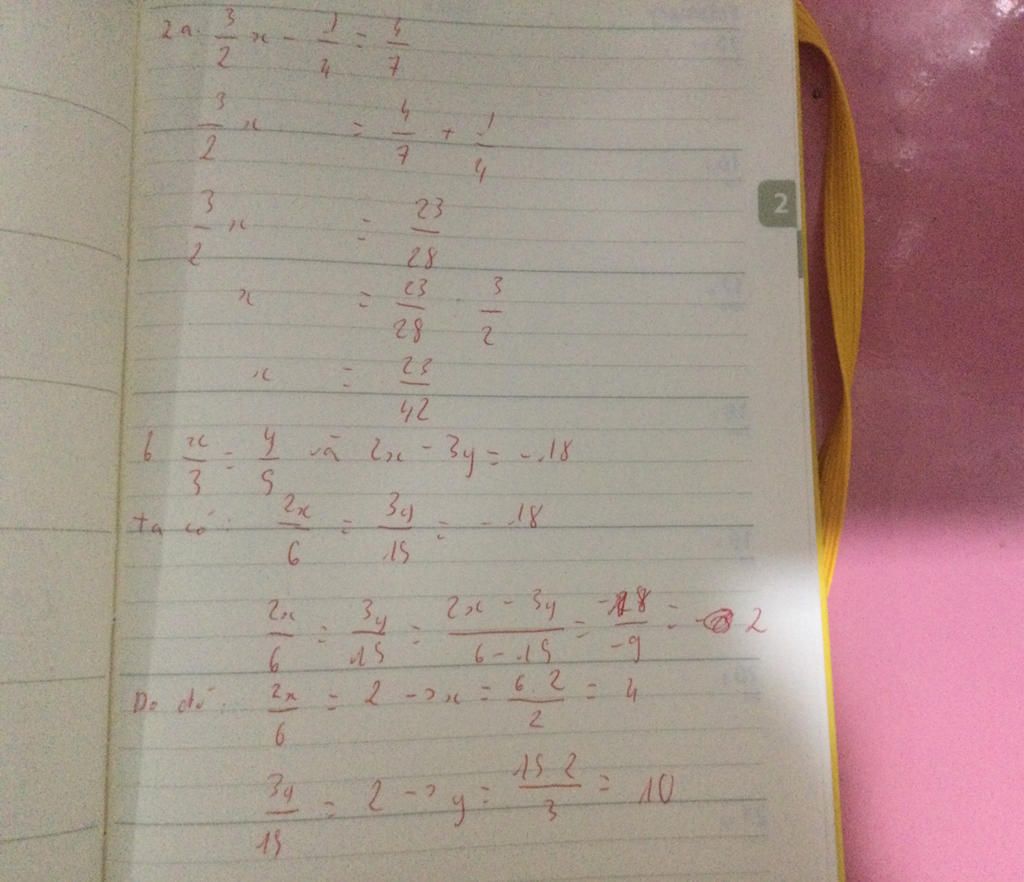 2a. 3/2 x - 1/4 = 4/7
3/2 x = 4/7 + 1/4
3/2 x = 23/28
x = 23/28 . 3/2
x = 23/42
b x/3 = y/5 và 2x - 3y = -18
ta có: 2x/6 = 3y/15 = -18
2x/6 = 3y/15 = (2x - 3y)/(6 - 15) = -18/-9 = 2
Do đó: 2x/6 = 2 -> x = (6.2)/2 = 4
3y/15 = 2 -> y = (15.2)/3 = 10
2